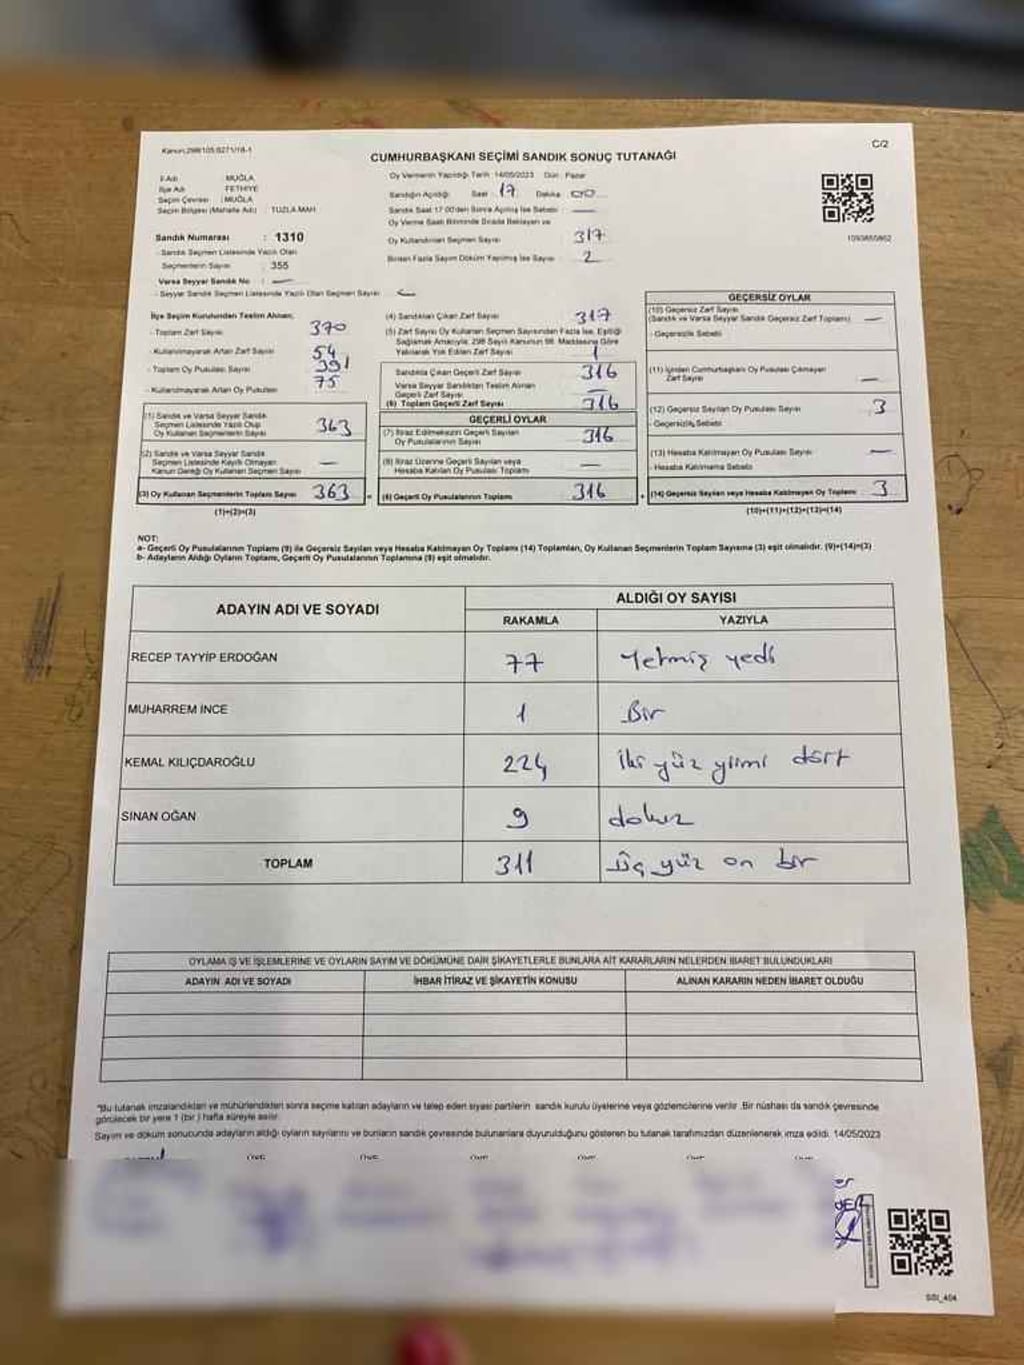 Kanun:298/105,6271/18-1
C/2
CUMHURBAŞKANI SEÇİMİ SANDIK SONUÇ TUTANAĞI
İl Adı : MUĞLA
İlçe Adı : FETHİYE
Seçim Çevresi : MUĞLA
Seçim Bölgesi (Mahalle Adı) : TUZLA MAH
Sandık Numarası : 1310
- Sandık Seçmen Listesinde Yazılı Olan
Seçmenlerin Sayısı : 355
Varsa Seyyar Sandık No : —
- Seyyar Sandık Seçmen Listesinde Yazılı Olan Seçmen Sayısı
Oy Vermenin Yapıldığı Tarih 14/05/2023 Gün Pazar
Sandığın Açıldığı Saat 17 Dakika 00
Sandık Saat 17:00'den Sonra Açılmış İse Sebebi : —
Oy Verme Saati Bitiminde Sırada Bekleyen ve
Oy Kullandırılan Seçmen Sayısı 317
Birden Fazla Sayım Döküm Yapılmış İse Sayısı 2
1093655862
İlçe Seçim Kurulundan Teslim Alınan;
- Toplam Zarf Sayısı 370
- Kullanılmayarak Artan Zarf Sayısı 54
- Toplam Oy Pusulası Sayısı 391
- Kullanılmayarak Artan Oy Pusulası 75
(1) Sandık ve Varsa Seyyar Sandık
Seçmen Listesinde Yazılı Olup
Oy Kullanan Seçmenlerin Sayısı 363
(2) Sandık ve Varsa Seyyar Sandık
Seçmen Listesinde Kayıtlı Olmayan
Kanun Gereği Oy Kullanan Seçmen Sayısı —
(3) Oy Kullanan Seçmenlerin Toplam Sayısı 363
(1)+(2)=(3)
(4) Sandıktan Çıkan Zarf Sayısı 317
(5) Zarf Sayısı Oy Kullanan Seçmen Sayısından Fazla İse, Eşitliği
Sağlamak Amacıyla, 298 Sayılı Kanunun 98. Maddesine Göre
Yakılarak Yok Edilen Zarf Sayısı 1
Sandıkta Çıkan Geçerli Zarf Sayısı 316
Varsa Seyyar Sandıktan Teslim Alınan
Geçerli Zarf Sayısı —
(6) Toplam Geçerli Zarf Sayısı 316
GEÇERLİ OYLAR
(7) İtiraz Edilmeksizin Geçerli Sayılan
Oy Pusulalarının Sayısı 316
(8) İtiraz Üzerine Geçerli Sayılan veya
Hesaba Katılan Oy Pusulası Toplamı —
= (9) Geçerli Oy Pusulalarının Toplamı 316
GEÇERSİZ OYLAR
(10) Geçersiz Zarf Sayısı
(Sandık ve Varsa Seyyar Sandık Geçersiz Zarf Toplamı) —
- Geçersizlik Sebebi
(11) İçinden Cumhurbaşkanı Oy Pusulası Çıkmayan
Zarf Sayısı —
(12) Geçersiz Sayılan Oy Pusulası Sayısı 3
- Geçersizlik Sebebi
(13) Hesaba Katılmayan Oy Pusulası Sayısı —
- Hesaba Katılmama Sebebi
+ (14) Geçersiz Sayılan veya Hesaba Katılmayan Oy Toplamı 3
(10)+(11)+(12)+(13)=(14)
NOT:
a- Geçerli Oy Pusulalarının Toplamı (9) ile Geçersiz Sayılan veya Hesaba Katılmayan Oy Toplamı (14) Toplamları, Oy Kullanan Seçmenlerin Toplam Sayısına (3) eşit olmalıdır. (9)+(14)=(3)
b- Adayların Aldığı Oyların Toplamı, Geçerli Oy Pusulalarının Toplamına (9) eşit olmalıdır.
ADAYIN ADI VE SOYADI
ALDIĞI OY SAYISI
RAKAMLA YAZIYLA
RECEP TAYYİP ERDOĞAN 77 Yetmiş yedi
MUHARREM İNCE 1 Bir
KEMAL KILIÇDAROĞLU 224 İki yüz yirmi dört
SİNAN OĞAN 9 dokuz
TOPLAM 311 Üç yüz on bir
OYLAMA İŞ VE İŞLEMLERİNE VE OYLARIN SAYIM VE DÖKÜMÜNE DAİR ŞİKAYETLERLE BUNLARA AİT KARARLARIN NELERDEN İBARET BULUNDUKLARI
ADAYIN ADI VE SOYADI İHBAR İTİRAZ VE ŞİKAYETİN KONUSU ALINAN KARARIN NEDEN İBARET OLDUĞU
*Bu tutanak imzalandıktan ve mühürlendikten sonra seçime katılan adayların ve talep eden siyasi partilerin sandık kurulu üyelerine veya gözlemcilerine verilir. Bir nüshası da sandık çevresinde
görülecek bir yere 1 (bir) hafta süreyle asılır.
Sayım ve döküm sonucunda adayların aldığı oyların sayılarını ve bunların sandık çevresinde bulunanlara duyurulduğunu gösteren bu tutanak tarafımızdan düzenlenerek imza edildi. 14/05/2023
SSI_404